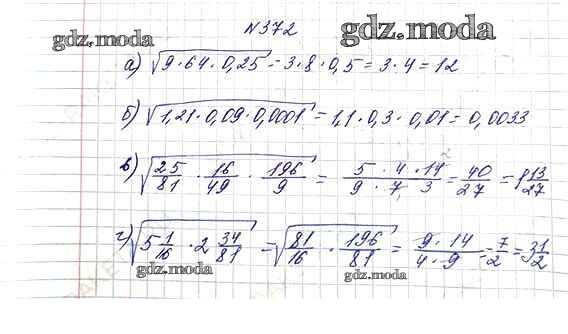 N372
gdz.moda gdz.moda
а) √9·64·0,25 = 3·8·0,5 = 3·4 = 12
б) √1,21·0,09·0,0001 = 1,1·0,3·0,01 = 0,0033
в) √25/81 · 16/49 · 196/9 = 5·4·14/9·7·3 = 40/27 = 1 13/27
г) √5 1/16 · 2 34/81 = √81/16 · 196/81 = 9·14/4·9 = 7/2 = 3 1/2
gdz.moda gdz.moda